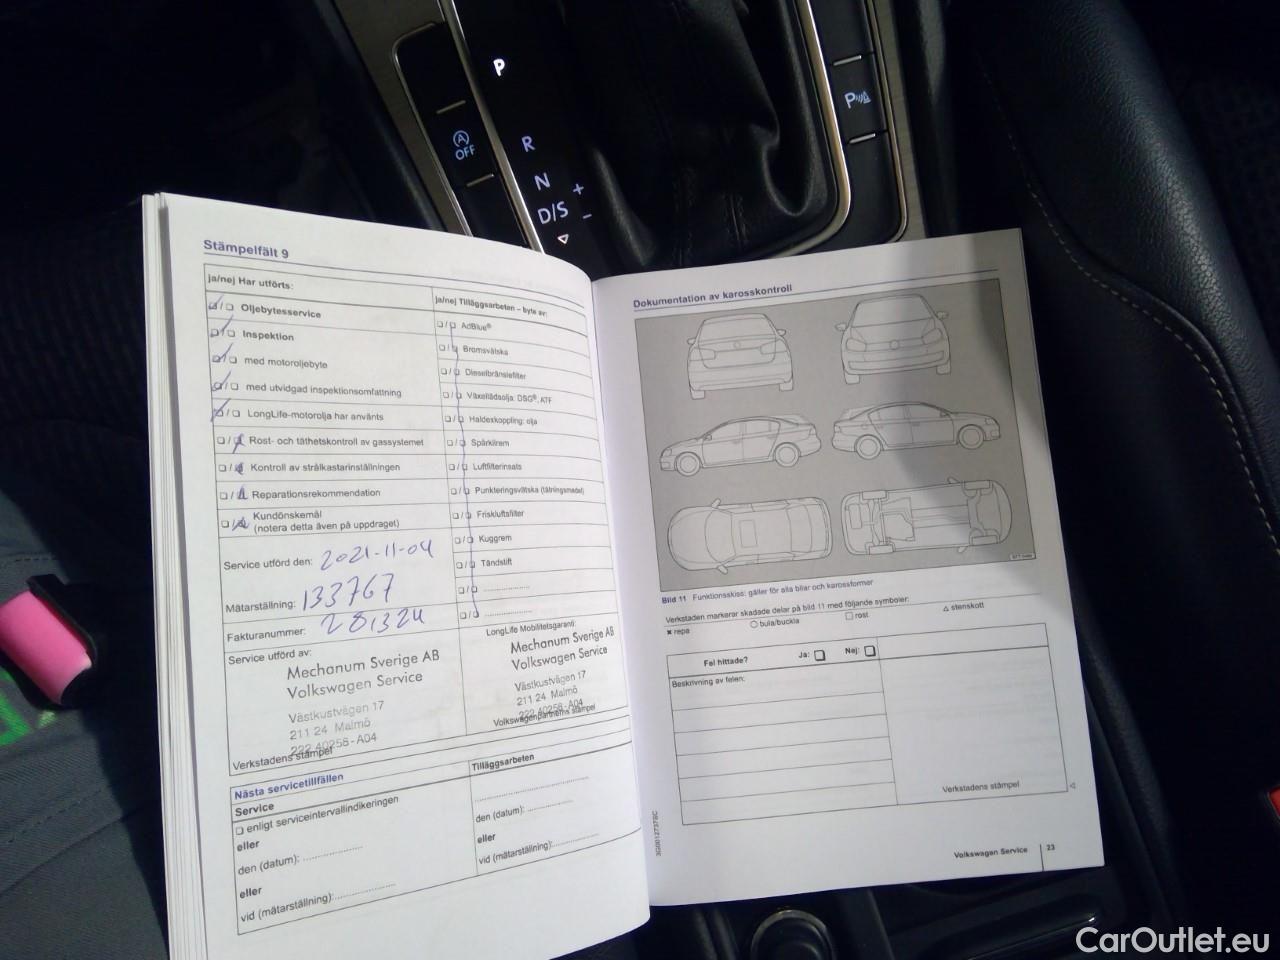 P
R
N
D/S + −
OFF
P
Stämpelfält 9
ja/nej Har utförts:
Oljebytesservice
Inspektion
med motoroljebyte
med utvidgad inspektionsomfattning
LongLife-motorolja har använts
Rost- och täthetskontroll av gassystemet
Kontroll av strålkastarinställningen
Reparationsrekommendation
Kundönskemål
(notera detta även på uppdraget)
Service utförd den: 2021-11-04
Mätarställning: 133767
Fakturanummer: 281324
Service utförd av:
Mechanum Sverige AB
Volkswagen Service
Västkustvägen 17
211 24 Malmö
222 40258-A04
Verkstadens stämpel
ja/nej Tilläggsarbeten – byte av:
AdBlue®
Bromsvätska
Dieselbränslefilter
Växellådsolja: DSG®, ATF
Haldexkoppling: olja
Spårkilrem
Luftfilterinsats
Punkteringsvätska (tätningsmedel)
Friskluftsfilter
Kuggrem
Tändstift
LongLife Mobilitetsgaranti:
Mechanum Sverige AB
Volkswagen Service
Västkustvägen 17
211 24 Malmö
222 40258-A04
Volkswagenpartnerns stämpel
Nästa servicetillfällen
Service
enligt serviceintervallindikeringen
eller
den (datum): ....................
eller
vid (mätarställning):....................
Tilläggsarbeten
den (datum): ...............
eller
vid (mätarställning):...............
Dokumentation av karosskontroll
Bild 11 Funktionsskiss: gäller för alla bilar och karossformer
Verkstaden markerar skadade delar på bild 11 med följande symboler:
× repa ○ bula/buckla □ rost △ stenskott
Fel hittade? Ja: Nej:
Beskrivning av felen:
Verkstadens stämpel
3G0012737BC
Volkswagen Service 23
CarOutlet.eu